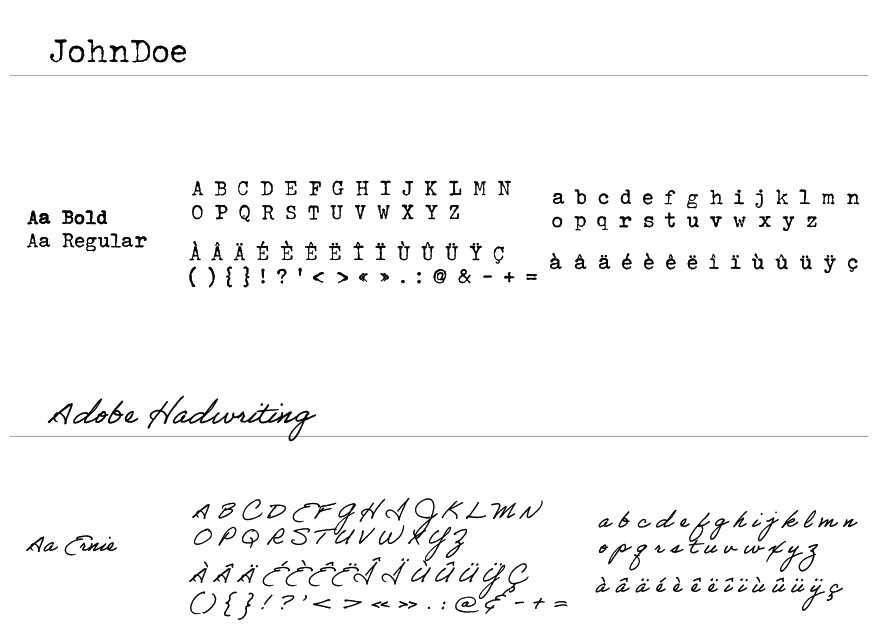 JohnDoe
Aa Bold
Aa Regular
A B C D E F G H I J K L M N
O P Q R S T U V W X Y Z
À Â Ä É È Ê Ë Î Ï Ù Û Ü Ÿ Ç
( ) { } ! ? ' < > « » . : @ & - + =
a b c d e f g h i j k l m n
o p q r s t u v w x y z
à â ä é è ê ë î ï ù û ü ÿ ç
Adobe Hadwriting
Aa Ernie
A B C D E F G H I J K L M N
O P Q R S T U V W X Y Z
À Â Ä É È Ê Ë Î Ï Ù Û Ü Ÿ Ç
( ) { } ! ? ' < > « » . : @ & - + =
a b c d e f g h i j k l m n
o p q r s t u v w x y z
à â ä é è ê ë î ï ù û ü ÿ ç